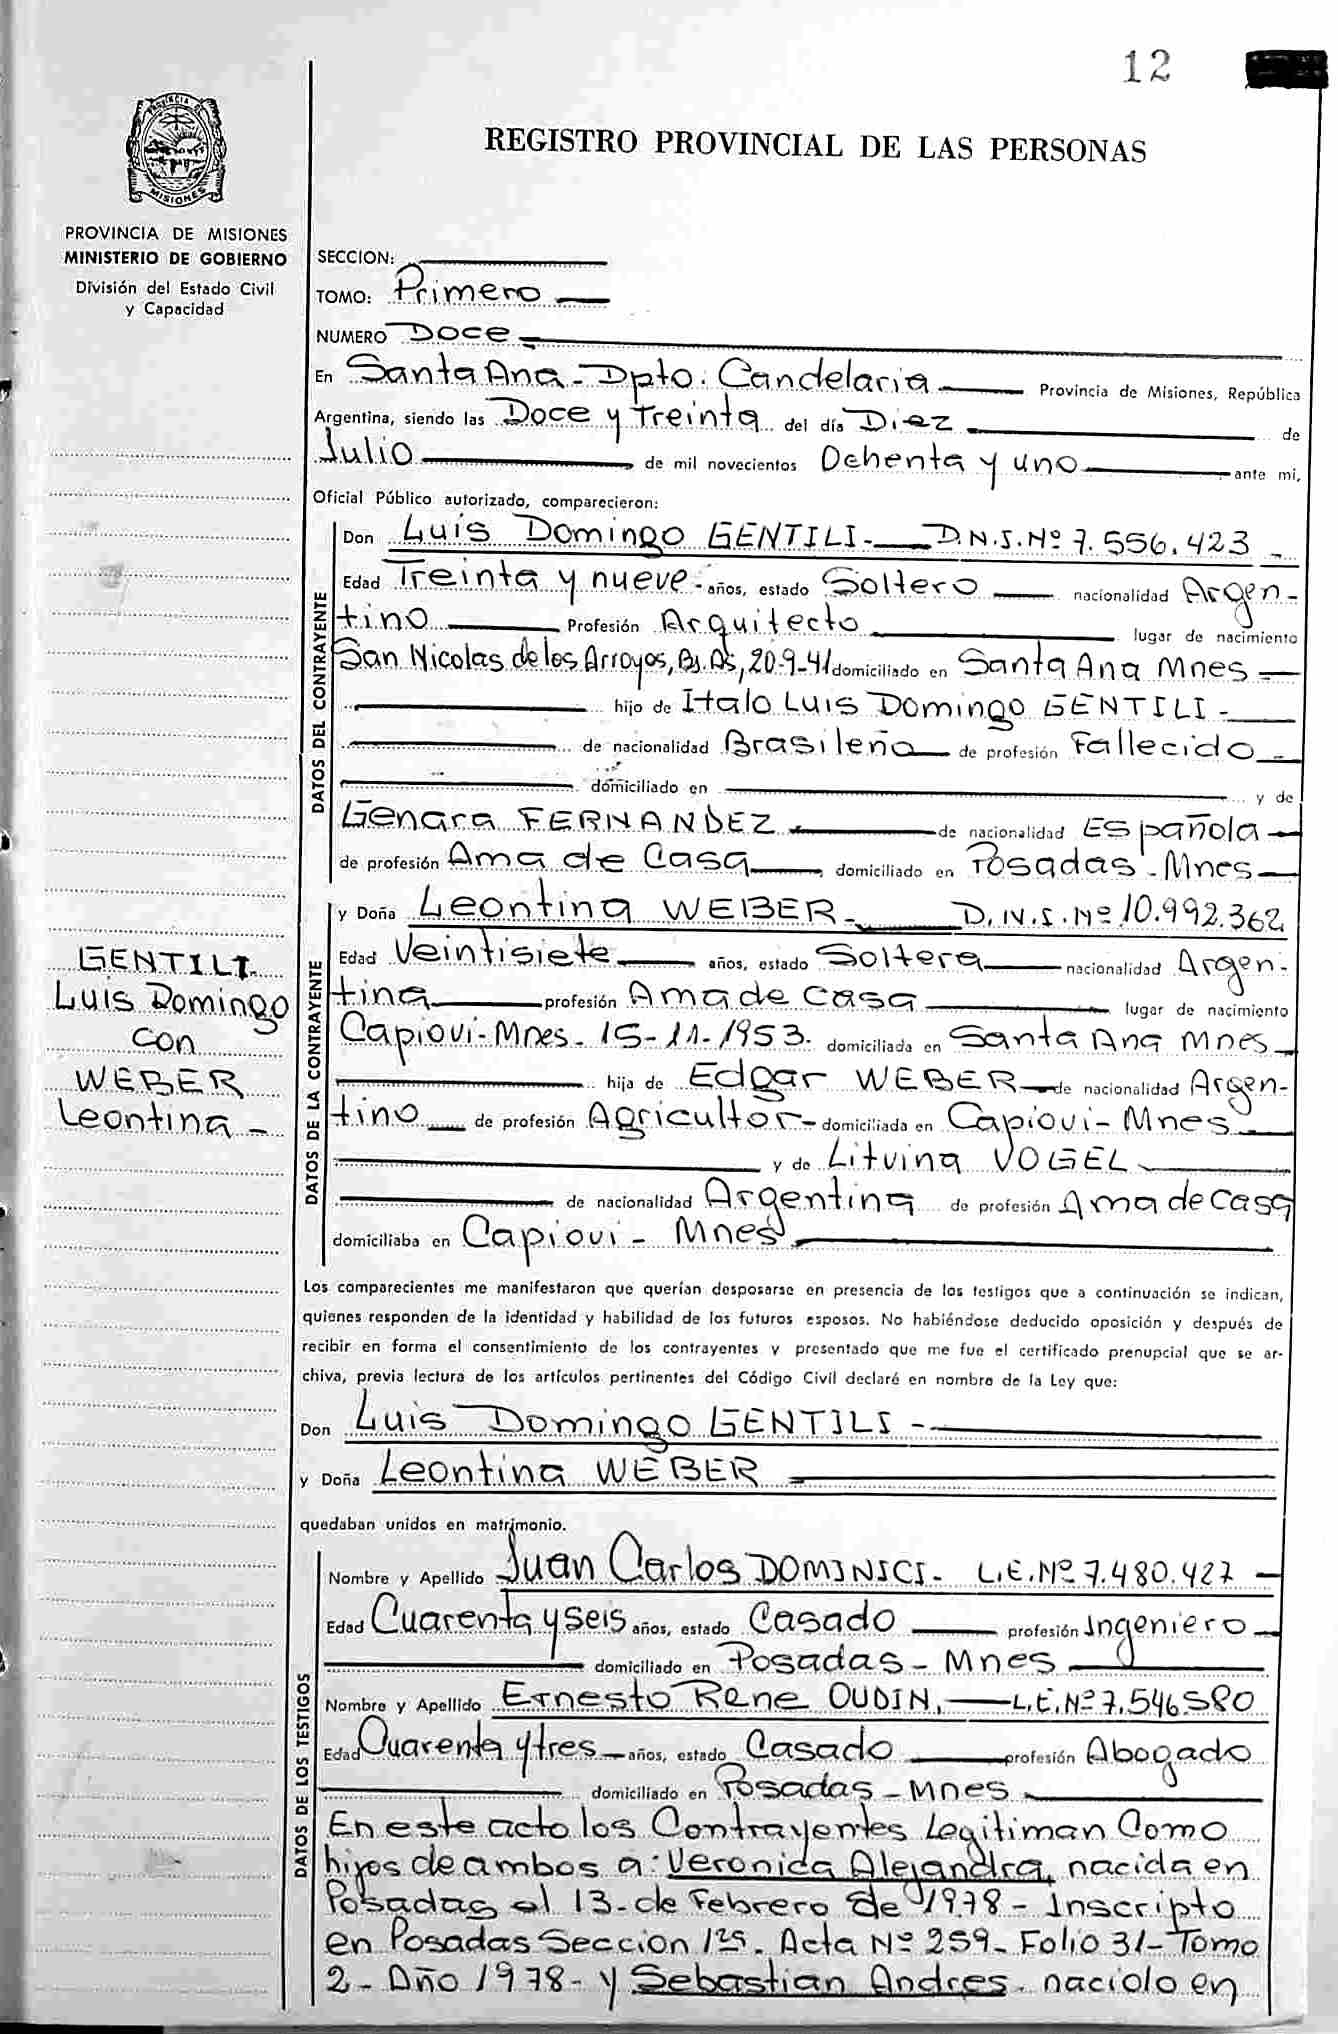 12
REGISTRO PROVINCIAL DE LAS PERSONAS
PROVINCIA DE
MISIONES
PROVINCIA DE MISIONES
MINISTERIO DE GOBIERNO
División del Estado Civil
y Capacidad
SECCION:
TOMO: Primero
NUMERO Doce
En Santa Ana - Dpto. Candelaria Provincia de Misiones, República
Argentina, siendo las Doce y Treinta del día Diez de
Julio de mil novecientos Ochenta y uno ante mi,
Oficial Público autorizado, comparecieron:
DATOS DEL CONTRAYENTE
Don Luis Domingo GENTILI - D.N.I. Nº 7.556.423 -
Edad Treinta y nueve - años, estado Soltero nacionalidad Argen-
tino Profesión Arquitecto lugar de nacimiento
San Nicolas de los Arroyos, Bs. As, 20-9-41 domiciliado en Santa Ana Mnes
hijo de Italo Luis Domingo GENTILI -
de nacionalidad Brasileña de profesión Fallecido
domiciliado en y de
Genara FERNANDEZ de nacionalidad Española
de profesión Ama de Casa domiciliado en Posadas - Mnes
DATOS DE LA CONTRAYENTE
y Doña Leontina WEBER - D.N.I. Nº 10.992.362
Edad Veintisiete años, estado Soltera nacionalidad Argen-
tina profesión Ama de Casa lugar de nacimiento
Capiovi - Mnes - 15-11-1953. domiciliada en Santa Ana Mnes
hija de Edgar WEBER de nacionalidad Argen-
tino de profesión Agricultor - domiciliada en Capiovi - Mnes
y de Litvina VOGEL
de nacionalidad Argentina de profesión Ama de Casa
domiciliaba en Capiovi - Mnes
GENTILI
Luis Domingo
con
WEBER
Leontina -
Los comparecientes me manifestaron que querían desposarse en presencia de los testigos que a continuación se indican,
quienes responden de la identidad y habilidad de los futuros esposos. No habiéndose deducido oposición y después de
recibir en forma el consentimiento de los contrayentes y presentado que me fue el certificado prenupcial que se ar-
chiva, previa lectura de los artículos pertinentes del Código Civil declaré en nombre de la Ley que:
Don Luis Domingo GENTILI -
y Doña Leontina WEBER
quedaban unidos en matrimonio.
DATOS DE LOS TESTIGOS
Nombre y Apellido Juan Carlos DOMINICI - L.E. Nº 7.480.427
Edad Cuarenta y seis años, estado Casado profesión Ingeniero
domiciliado en Posadas - Mnes
Nombre y Apellido Ernesto Rene OUDIN, L.E. Nº 7.546.580
Edad Cuarenta y tres años, estado Casado profesión Abogado
domiciliado en Posadas - Mnes
En este acto los Contrayentes Legitiman Como
hijos de ambos a: Veronica Alejandra, nacida en
Posadas el 13 - de Febrero de 1978 - Inscripto
en Posadas Seccion 1ra. Acta Nº 259 - Folio 31 - Tomo
2 - Año 1978 - y Sebastian Andres - nacido en